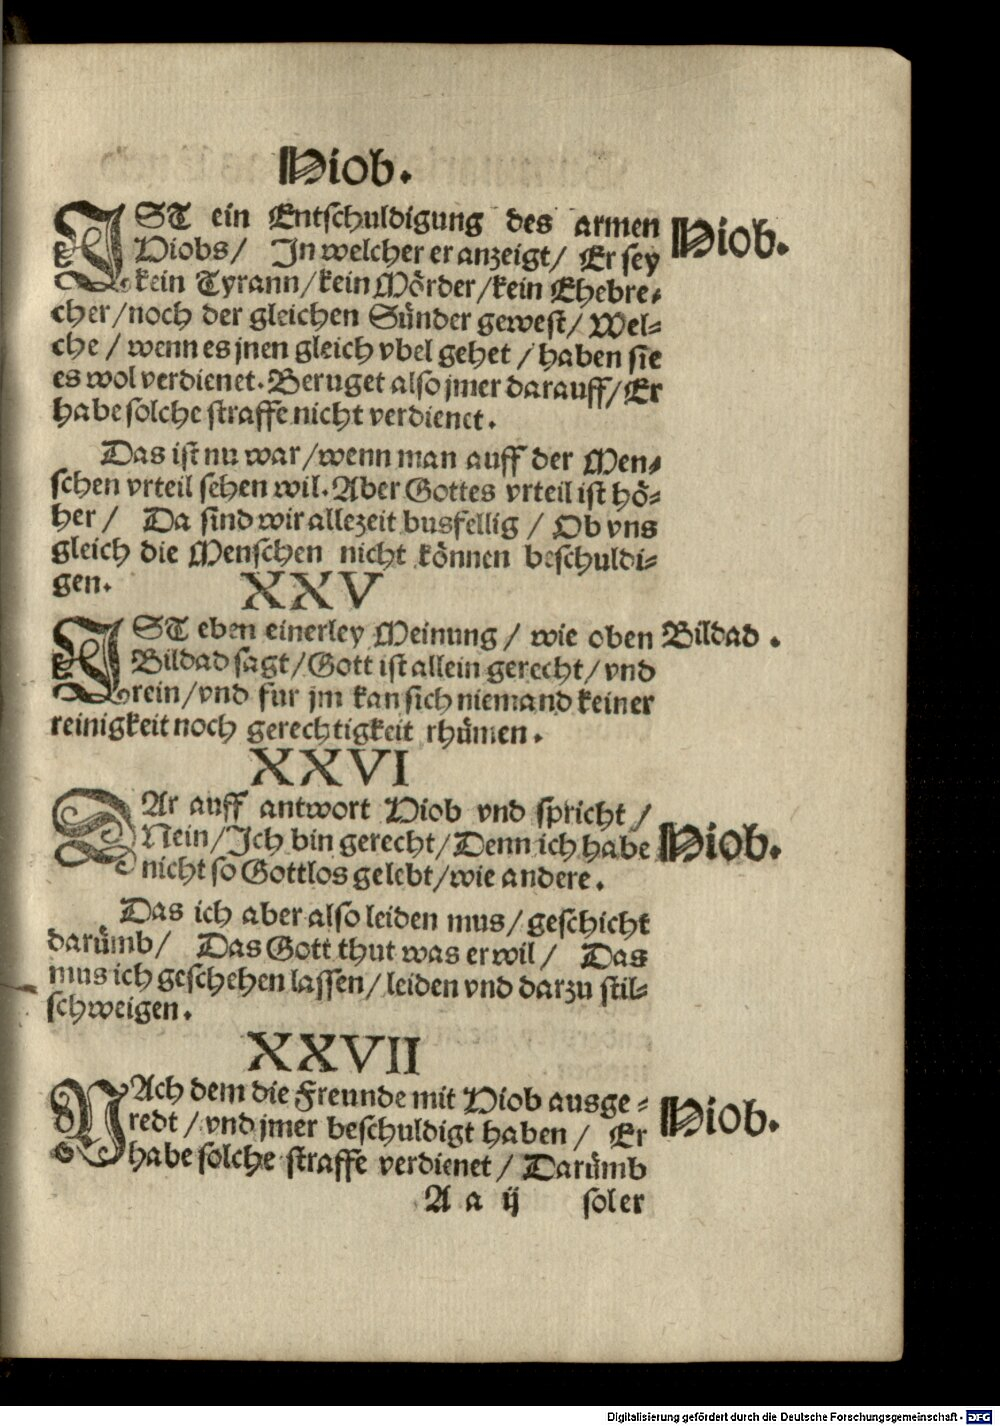 Hiob.
IST ein Entschuldigung des armen
Hiobs/ In welcher er anzeigt/ Er sey
kein Tyrann/kein Mörder/kein Ehebre-
cher/noch der gleichen Sünder gewest/ Wel-
che / wenn es jnen gleich vbel gehet / haben sie
es wol verdienet. Beruget also jmer darauff/Er
habe solche straffe nicht verdienet.
Hiob.
Das ist nu war/wenn man auff der Men-
schen vrteil sehen wil. Aber Gottes vrteil ist hö-
her / Da sind wir allezeit busfellig / Ob vns
gleich die Menschen nicht können beschuldi-
gen.
XXV
IST eben einerley Meinung / wie oben
Bildad sagt/Gott ist allein gerecht/vnd
rein/vnd fur jm kan sich niemand keiner
reinigkeit noch gerechtigkeit rhümen.
Bildad.
XXVI
DAr auff antwort Hiob vnd spricht /
Nein/Ich bin gerecht/Denn ich habe
nicht so Gottlos gelebt/wie andere.
Hiob.
Das ich aber also leiden mus/geschicht
darümb/ Das Gott thut was er wil/ Das
mus ich geschehen lassen/leiden vnd darzu stil-
schweigen.
XXVII
NAch dem die Freunde mit Hiob ausge-
redt/vnd jmer beschuldigt haben/ Er
habe solche straffe verdienet/Darümb
Hiob.
A a ij soler
Digitalisierung gefördert durch die Deutsche Forschungsgemeinschaft - DFG